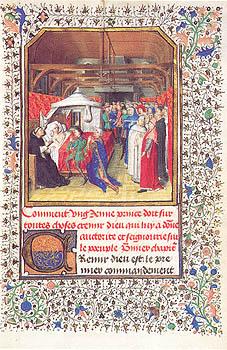 Comment ung Jenne prince doit sur
toutes choses cremir dieu qui luy a donne
auctorite et seignourie sur
le peuple Pmier chapre
Cremir dieu est le pre
mier commandement